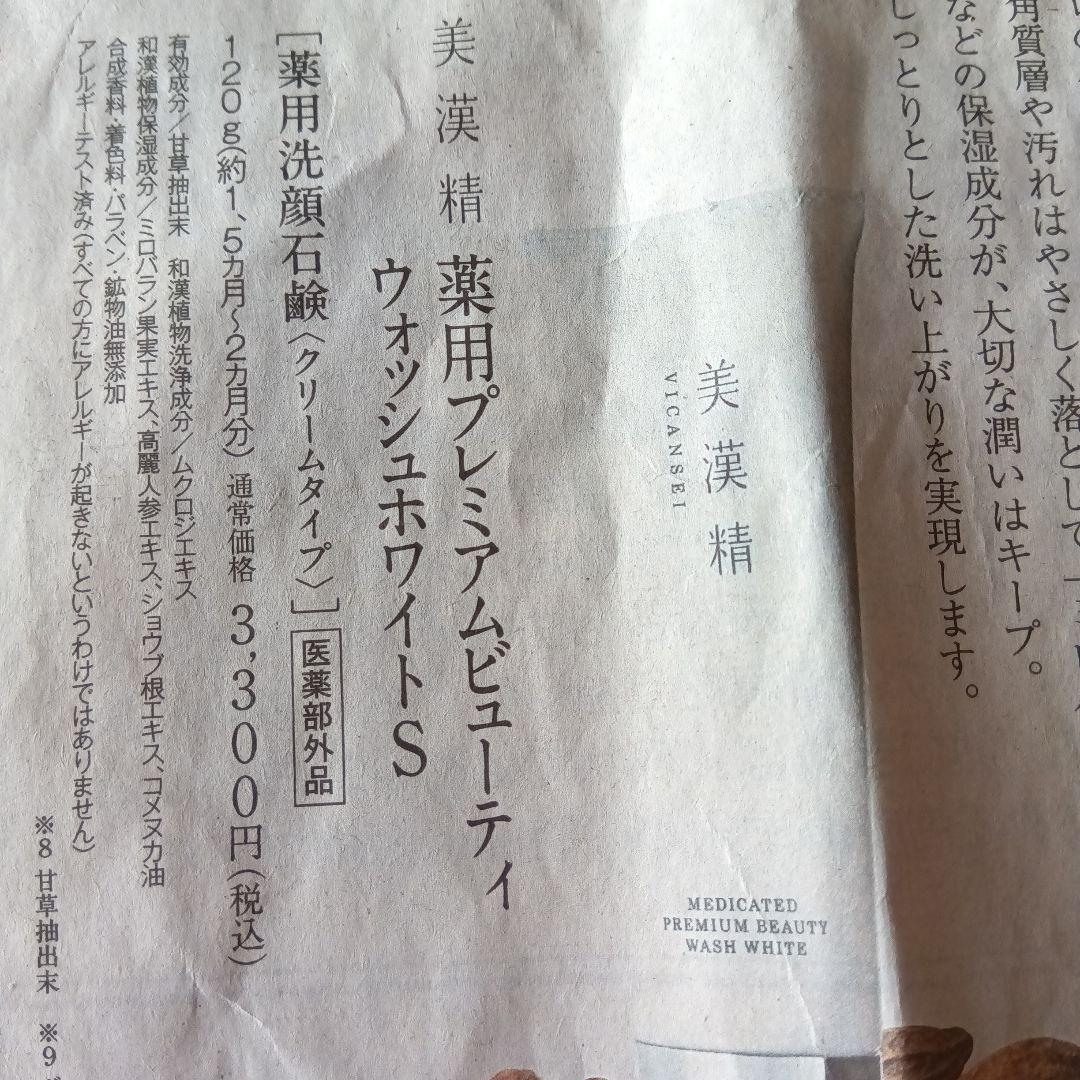 角質層や汚れはやさしく落として
などの保湿成分が、大切な潤いはキープ。
しっとりとした洗い上がりを実現します。
美漢精
VICANSEI
MEDICATED
PREMIUM BEAUTY
WASH WHITE
美漢精 薬用プレミアムビューティ
ウォッシュホワイトS
［薬用洗顔石鹸〈クリームタイプ〉］医薬部外品
120g(約1.5カ月〜2カ月分) 通常価格 3,300円(税込)
有効成分/甘草抽出末 和漢植物洗浄成分/ムクロジエキス
和漢植物保湿成分/ミロバラン果実エキス、高麗人参エキス、ショウブ根エキス、コメヌカ油
合成香料・着色料・パラベン・鉱物油無添加
アレルギーテスト済み(すべての方にアレルギーが起きないというわけではありません)
※8 甘草抽出末 ※9